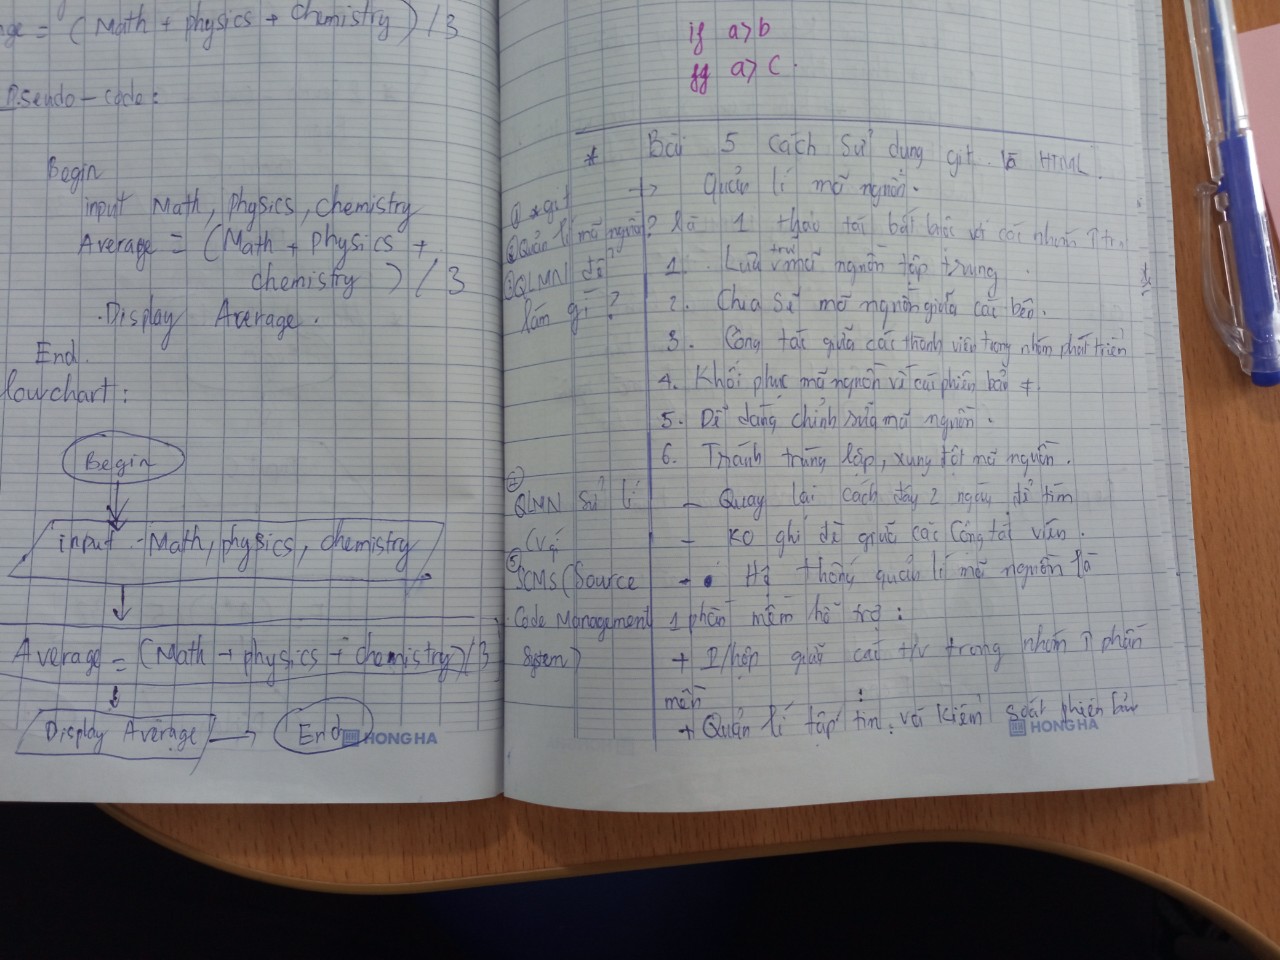 ge = (Math + physics + chemistry) / 3
Pseudo-code:
Begin
input Math, physics, chemistry
Average = (Math + physics +
chemistry) / 3
Display Average.
End.
lowchart:
Begin
input Math, physics, chemistry
Average = (Math + physics + chemistry)/3
Display Average
End
HONG HA
if a>b
a>c.
* Bài 5 Cách sử dụng git và HTML.
① *git
+> Quản lí mã nguồn.
② Quản lí mã nguồn?
là 1 thao tác bắt buộc với các nhóm ↑
③ QLMN để
làm gì?
1. Lưu trữ mã nguồn tập trung
2. Chia sẻ mã nguồn giữa các bên.
3. Cộng tác giữa các thành viên trong nhóm phát triển
4. Khôi phục mã nguồn về các phiên bản +.
5. Dễ dàng chỉnh sửa mã nguồn.
6. Tránh trùng lặp, xung đột mã nguồn.
QLMN Sử lí
- Quay lại cách đây 2 ngày để tìm
- Ko ghi đè giữa các Cộng tác viên.
⑤
SCMS (Source
Code Management
System)
- Hệ thống quản lí mã nguồn là
1 phần mềm hỗ trợ:
+ giữa các t/v trong nhóm ↑ phần
mềm
+ Quản lí tập tin, và kiểm soát phiên bản
HONG HA